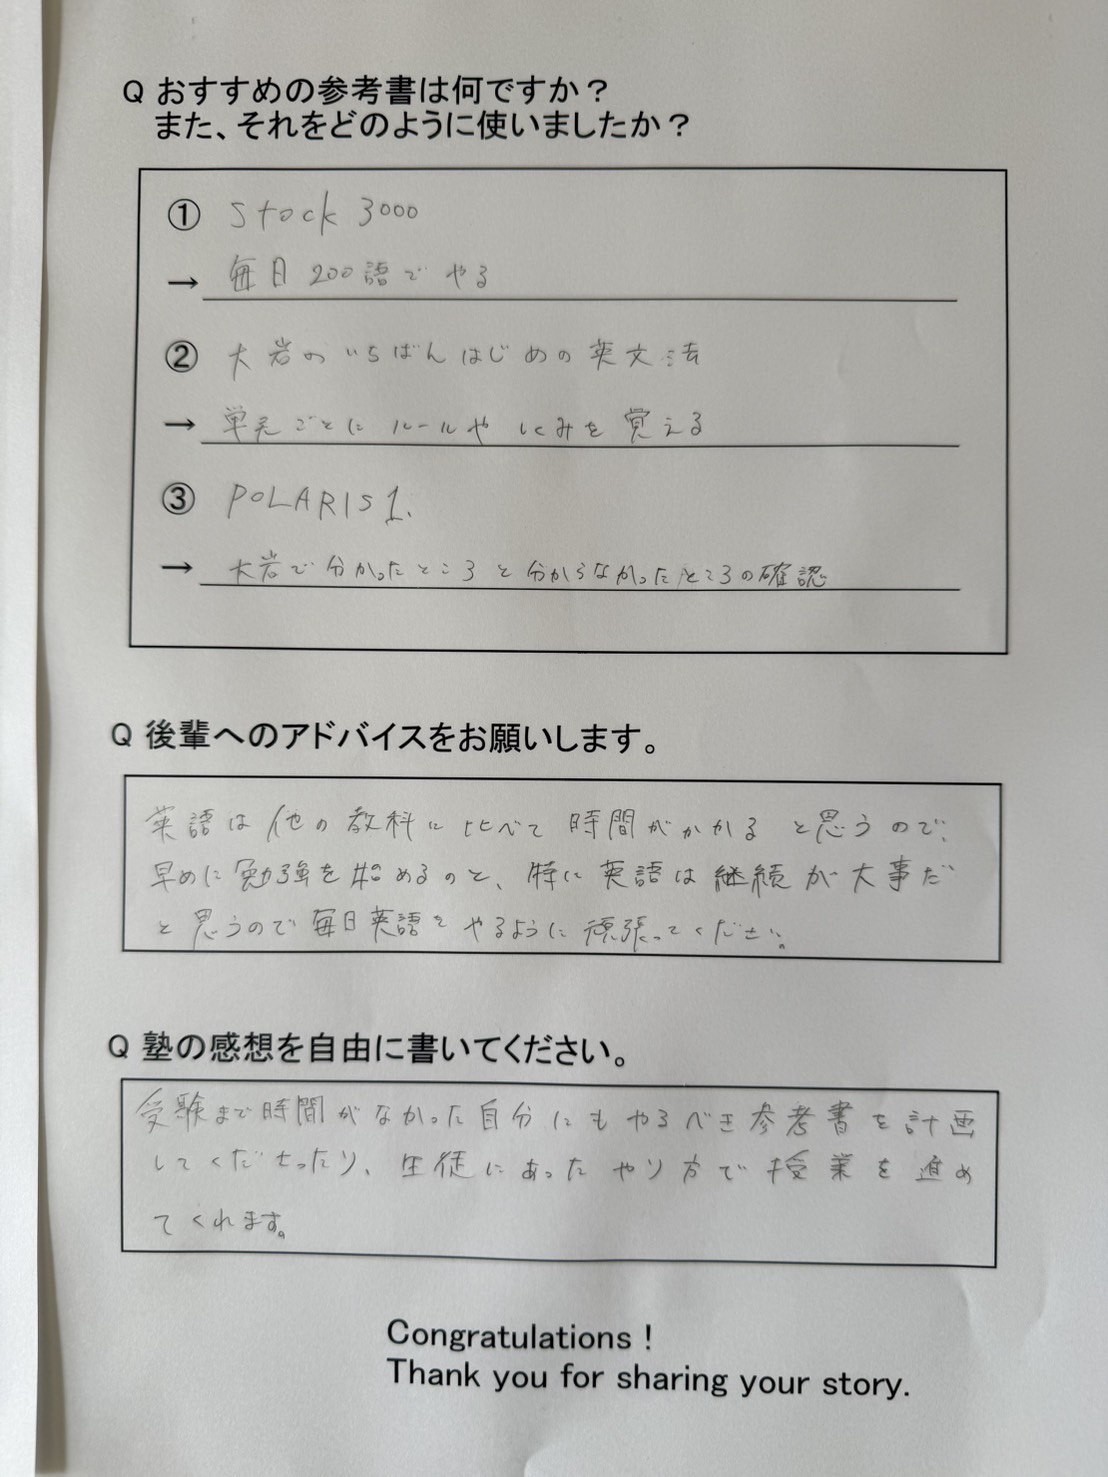 Q おすすめの参考書は何ですか？
また、それをどのように使いましたか？
① Stock 3000
→ 毎日200語でやる
② 大岩のいちばんはじめの英文法
→ 単元ごとにルールやしくみを覚える
③ POLARIS 1.
→ 大岩で分かったところと分からなかったところの確認
Q 後輩へのアドバイスをお願いします。
英語は他の教科に比べて時間がかかると思うので、
早めに勉強を始めるのと、特に英語は継続が大事だ
と思うので毎日英語をやるように頑張ってください。
Q 塾の感想を自由に書いてください。
受験まで時間がなかった自分にもやるべき参考書を計画
してくださったり、生徒にあったやり方で授業を進め
てくれます。
Congratulations！
Thank you for sharing your story.